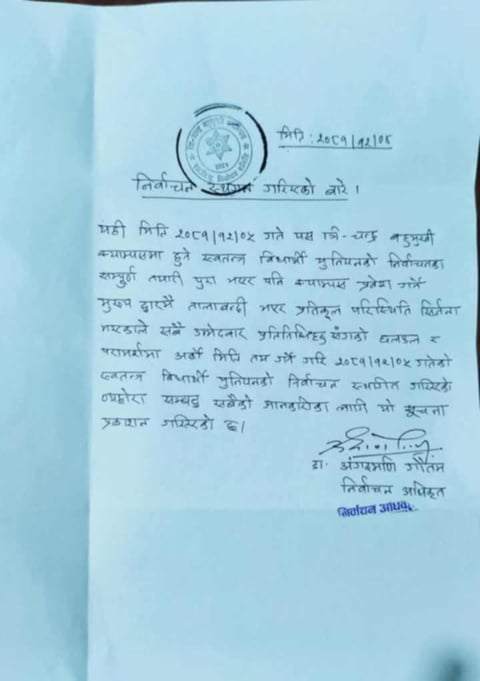 मिति : २०८१/१२/०५
निर्वाचन स्थगन गरिएको बारे ।
यही मिति २०८१/१२/०५ गते यस त्रि-चन्द्र बहुमुखी
क्याम्पसमा हुने स्वतन्त्र विद्यार्थी युनियनको निर्वाचनका
सम्पूर्ण तयारी पुरा भएर पनि क्याम्पस प्रवेश गर्ने
मुख्य द्वारमै तालाबन्दी भएर प्रतिकूल परिस्थिति सिर्जना
भएकाले सबै उम्मेदवार प्रतिनिधिहरु सँगको छलफल र
परामर्शमा अर्को मिति तय गर्ने गरि २०८१/१२/०५ गतेको
स्वतन्त्र विद्यार्थी युनियनको निर्वाचन स्थगित गरिएको
व्यहोरा सम्बद्ध सबैको जानकारीका लागि यो सूचना
प्रकाशन गरिएको छ।
डा. अंगदमणि गौतम
निर्वाचन अधिकृत
निर्वाचन अधिकृत